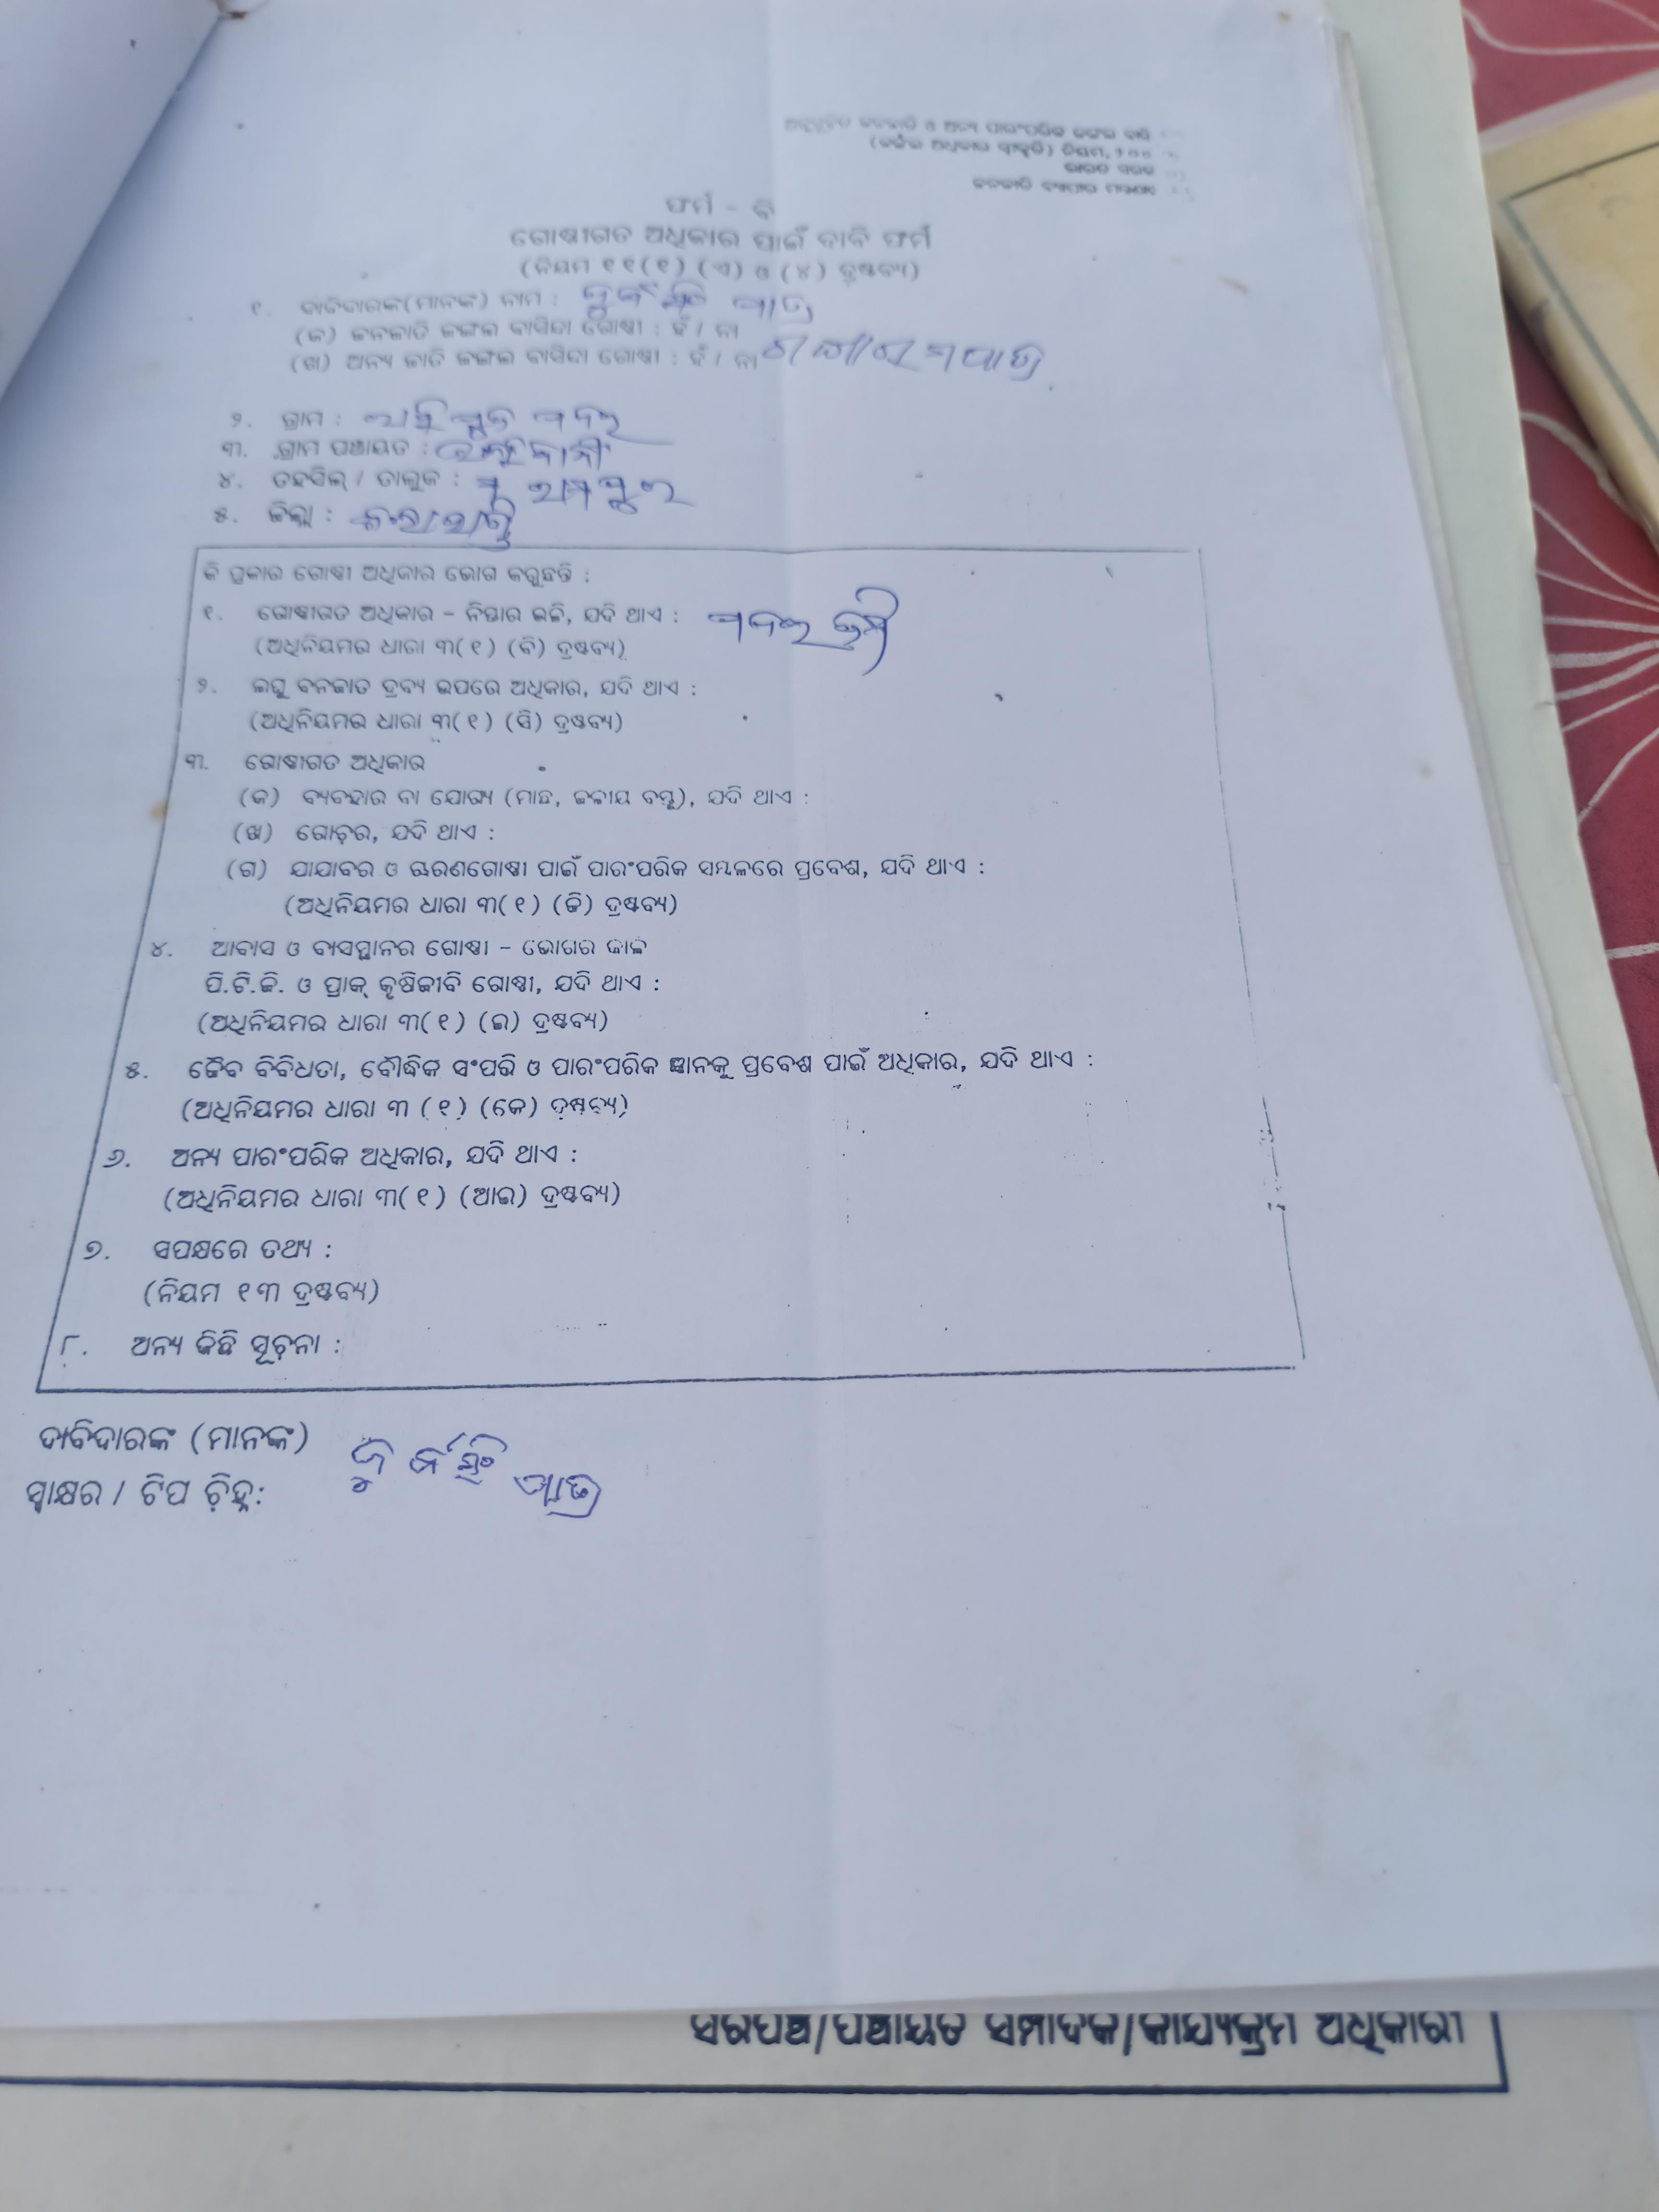 ଅନୁସୂଚିତ ଜନଜାତି ଓ ଅନ୍ୟ ପାରଂପରିକ ଜଙ୍ଗଲ ବାସି
(ଜଙ୍ଗଲ ଅଧିକାର ସ୍ୱୀକୃତି) ନିୟମ, ୨୦୦
ଭାରତ ସରକ
ଜନଜାତି ବ୍ୟାପାର ମନ୍ତ୍ରଣାଳ
ଫର୍ମ - ବି
ଗୋଷ୍ଠୀଗତ ଅଧିକାର ପାଇଁ ଦାବି ଫର୍ମ
(ନିୟମ ୧୧(୧) (ଏ) ଓ (୪) ଦ୍ରଷ୍ଟବ୍ୟ)
୧. ଦାବିଦାରଙ୍କ(ମାନଙ୍କ) ନାମ : ପାତ୍ର
(କ) ଜନଜାତି ଜଙ୍ଗଲ ବାସିନ୍ଦା ଗୋଷ୍ଠୀ : ହଁ / ନା
(ଖ) ଅନ୍ୟ ଜାତି ଜଙ୍ଗଲ ବାସିନ୍ଦା ଗୋଷ୍ଠୀ : ହଁ / ନା
୨. ଗ୍ରାମ :
୩. ଗ୍ରାମ ପଞ୍ଚାୟତ :
୪. ତହସିଲ୍ / ତାଲୁକ :
୫. ଜିଲ୍ଲା :
କି ପ୍ରକାର ଗୋଷ୍ଠୀ ଅଧିକାର ଭୋଗ କରୁଛନ୍ତି :
୧. ଗୋଷ୍ଠୀଗତ ଅଧିକାର - ନିସ୍ତାର ଭଳି, ଯଦି ଥାଏ :
(ଅଧିନିୟମର ଧାରା ୩(୧) (ବି) ଦ୍ରଷ୍ଟବ୍ୟ)
୨. ଲଘୁ ବନଜାତ ଦ୍ରବ୍ୟ ଉପରେ ଅଧିକାର, ଯଦି ଥାଏ :
(ଅଧିନିୟମର ଧାରା ୩(୧) (ସି) ଦ୍ରଷ୍ଟବ୍ୟ)
୩. ଗୋଷ୍ଠୀଗତ ଅଧିକାର
(କ) ବ୍ୟବହାର ବା ଯୋଗ୍ୟ (ମାଛ, ଜଳୀୟ ବସ୍ତୁ), ଯଦି ଥାଏ :
(ଖ) ଗୋଚ଼ର, ଯଦି ଥାଏ :
(ଗ) ଯାଯାବର ଓ ଚ଼ାରଣଗୋଷ୍ଠୀ ପାଇଁ ପାରଂପରିକ ସମ୍ବଳରେ ପ୍ରବେଶ, ଯଦି ଥାଏ :
(ଅଧିନିୟମର ଧାରା ୩(୧) (ଜି) ଦ୍ରଷ୍ଟବ୍ୟ)
୪. ଆବାସ ଓ ବାସସ୍ଥାନର ଗୋଷ୍ଠୀ - ଭୋଗର କାଳ
ପି.ଟି.ଜି. ଓ ପ୍ରାକ୍ କୃଷିଜୀବି ଗୋଷ୍ଠୀ, ଯଦି ଥାଏ :
(ଅଧିନିୟମର ଧାରା ୩(୧) (ଇ) ଦ୍ରଷ୍ଟବ୍ୟ)
୫. ଜୈବ ବିବିଧତା, ବୌଦ୍ଧିକ ସଂପତ୍ତି ଓ ପାରଂପରିକ ଜ୍ଞାନକୁ ପ୍ରବେଶ ପାଇଁ ଅଧିକାର, ଯଦି ଥାଏ :
(ଅଧିନିୟମର ଧାରା ୩ (୧) (କେ) ଦ୍ରଷ୍ଟବ୍ୟ)
୬. ଅନ୍ୟ ପାରଂପରିକ ଅଧିକାର, ଯଦି ଥାଏ :
(ଅଧିନିୟମର ଧାରା ୩(୧) (ଆଇ) ଦ୍ରଷ୍ଟବ୍ୟ)
୭. ସପକ୍ଷରେ ତଥ୍ୟ :
(ନିୟମ ୧୩ ଦ୍ରଷ୍ଟବ୍ୟ)
୮. ଅନ୍ୟ କିଛି ସୂଚ଼ନା :
ଦାବିଦାରଙ୍କ (ମାନଙ୍କ)
ସ୍ୱାକ୍ଷର / ଟିପ ଚ଼ିହ୍ନ: ପାତ୍ର
ସରପଞ୍ଚ/ପଞ୍ଚାୟତ ସମ୍ପାଦକ/କାର୍ଯ୍ୟକ୍ରମ ଅଧିକାରୀ